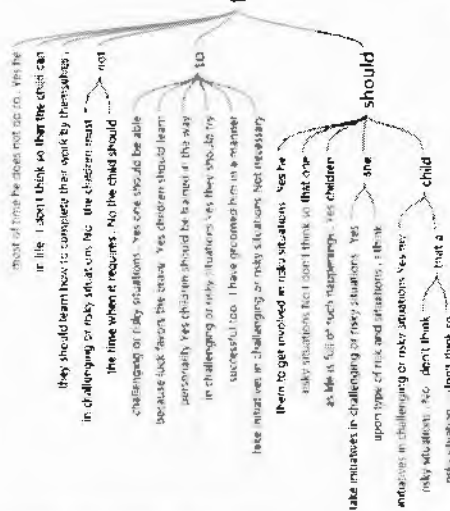 most of time he does not do so . Yes he
in life . I don't think so that the child can
they should learn how to complete their work by themselves .
in challenging or risky situations No . the children must
not
the time when it requires . No the child should
challenging or risky situations . Yes one should be able
because luck favors the brave . Yes children should learn
to
personality Yes children should be trained in the way
in challenging or risky situations Yes they should try
successful too . I have groomed him in a manner
take initiatives in challenging or risky situations Not necessary
them to get involved in risky situations . Yes he
risky situations No I don't think so that one
as life is full of such happenings . Yes children
should
take initiatives in challenging or risky situations . Yes
one
upon type of risk and situations . I think
initiatives in challenging or risky situations Yes my
child
risky situations . No . don't think
that a
don't think so